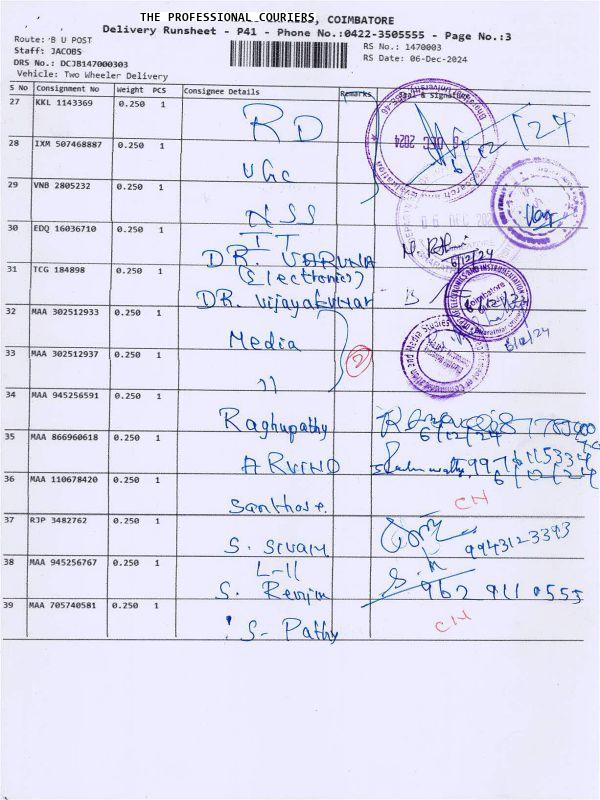 THE PROFESSIONAL COURIERS, COIMBATORE
Delivery Runsheet - P41 - Phone No.:0422-3505555 - Page No.:3
Route: B U POST
RS No.: 1470003
Staff: JACOBS
RS Date: 06-Dec-2024
DRS No.: DCJB147000303
Vehicle: Two Wheeler Delivery
S No Consignment No Weight PCS Consignee Details Remarks Seal & Signature
27 KKL 1143369 0.250 1 RD
28 IXM 507468887 0.250 1 UGC
29 VNB 2805232 0.250 1 NSS
30 EDQ 16036710 0.250 1 IT
DR. VARUNA 6/12/24
31 TCG 184898 0.250 1 (Electronics)
DR. Vijayakumar
32 MAA 302512933 0.250 1 Media
6/12/24
33 MAA 302512937 0.250 1 11
2
34 MAA 945256591 0.250 1 Raghupathy
6/12/24
35 MAA 866960618 0.250 1 ARVIND 9976115334
6/12/24
36 MAA 110678420 0.250 1 Santhose. CN
37 RJP 3482762 0.250 1 S. SIVAM 9943123393
38 MAA 945256767 0.250 1 L-11
S. Renjin 962 911 0555
39 MAA 705740581 0.250 1 S- Pathy CN